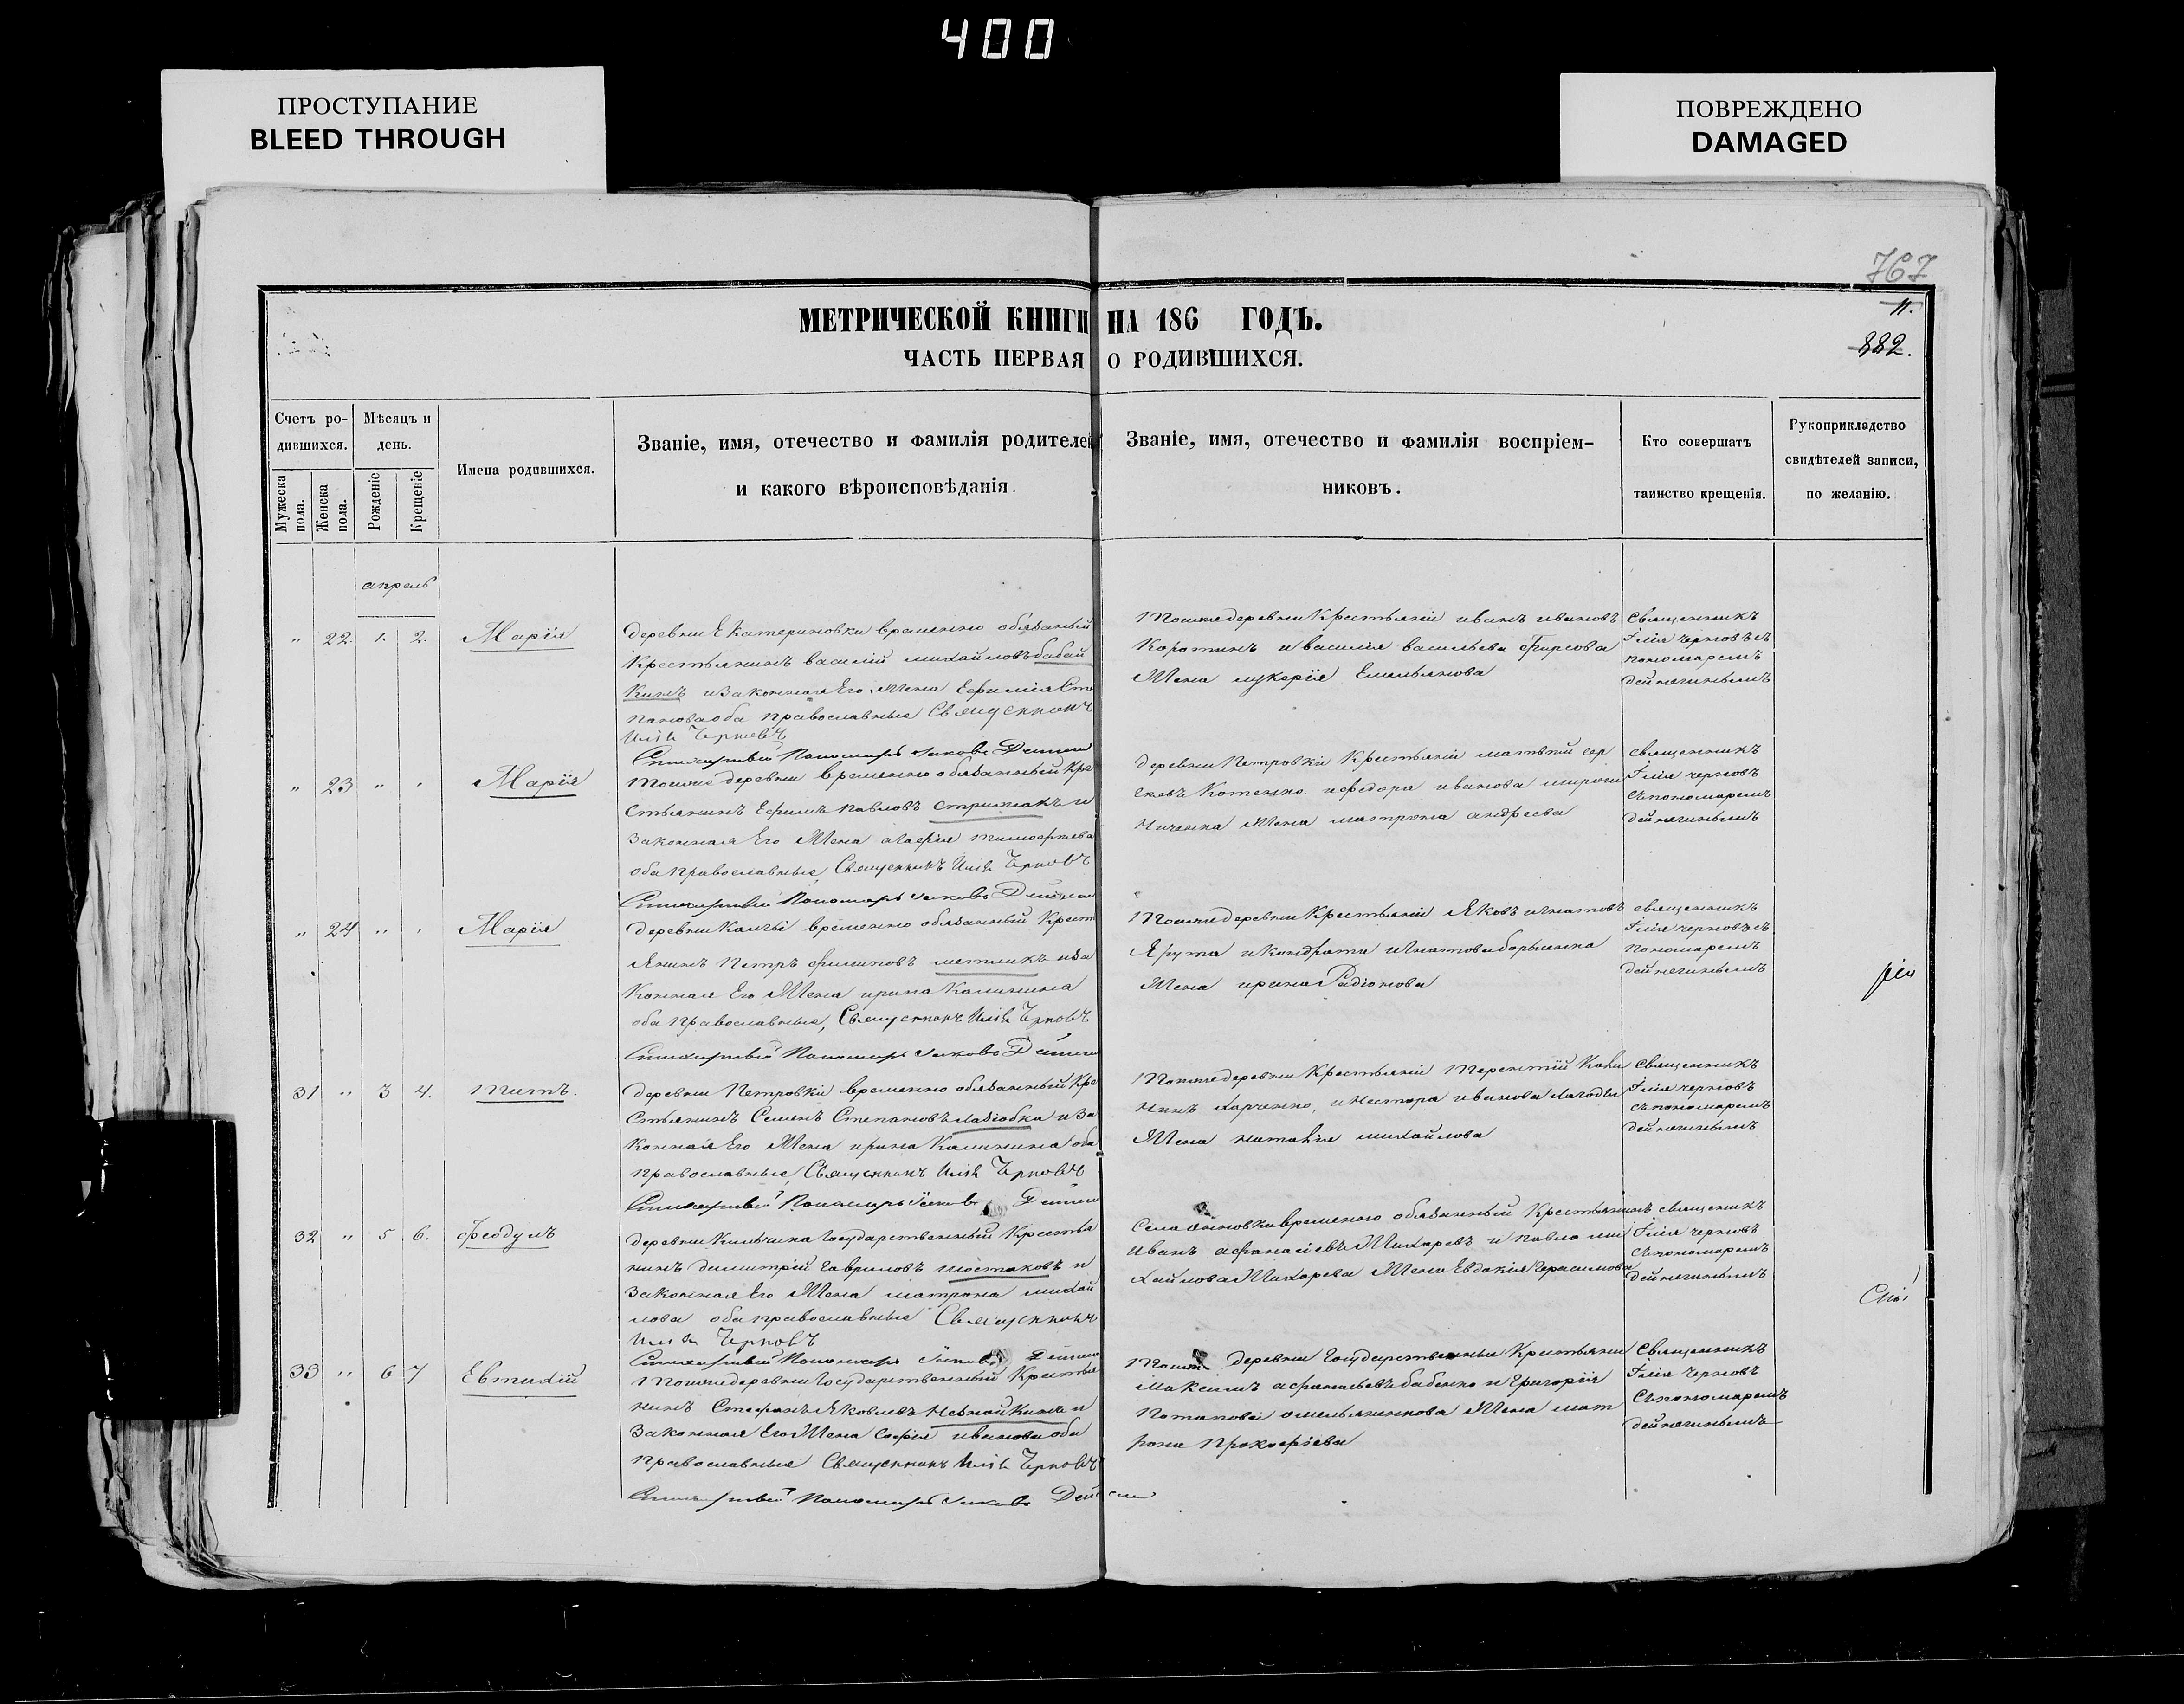 400
ПРОСТУПАНИЕ
BLEED THROUGH
ПОВРЕЖДЕНО
DAMAGED
767
11.
882.
МЕТРИЧЕСКОЙ КНИГИ НА 186 ГОДЪ.
ЧАСТЬ ПЕРВАЯ О РОДИВШИХСЯ.
Счетъ ро-
дившихся.
Мужеска
пола.
Женска
пола.
Мѣсяцъ и
день.
Рожденіе
Крещеніе
Имена родившихся.
Званіе, имя, отечество и фамилія родителей
и какого вѣроисповѣданія.
Званіе, имя, отечество и фамилія воспріем-
никовъ.
Кто совершатъ
таинство крещенія.
Рукоприкладство
свидѣтелей записи,
по желанію.
апрель
" 22. 1. 2. Марія
деревни Екатериновки временно обязанный
Крестьянинъ василій михайловъ бабай
кинъ и законная Его Жена Ефимія Сте
панова оба православные Священникъ
Илія Черновъ
Стихарный Пономарь Іаковъ
тойже деревни Крестьяній иванъ ивановъ
Коротинъ и василія васильева Фирсова
Жена лукерія Емельянова
священникъ
Ілія черновъ съ
пономаремъ
дейнегинымъ
" 23 " " Марія
тойже деревни временно обязанный Кре
стьянинъ Ефимъ павловъ стрижакъ и
законная Его Жена Тимофеева
оба православные, Священникъ Илія Черновъ
Стихарный Пономарь Іаковъ
деревни Петровки Крестьяній матвій сер
геевъ Котенко и федора иванова мирош
ниченка Жена матрона андреева
священникъ
Ілія черновъ
съ пономаремъ
дейнегинымъ
" 24 " " Марія
деревни временно обязанный Крест
янинъ Петръ филиповъ метликъ и за
конная Его Жена ирина Калинина
оба православные, Священникъ Илія Черновъ
Стихарный Пономарь Іаковъ
тойже деревни Крестьяній Яковъ игнатовъ
Ярута и Кондрата игнатова борысенка
Жена ирина Радіонова
священникъ
Ілія черновъ съ
пономаремъ
дейнегинымъ
31 " 3 4. Титъ.
деревни Петровки временно обязанный Кре
стьянинъ Семенъ Степановъ и за
конная Его Жена ирина Калинина оба
православные, Священникъ Илія Черновъ
Стихарный Пономарь Іаковъ
тойже деревни Крестьяній Терентій Кали
нинъ Харченко, и Нестора иванова
Жена наталія михайлова
священникъ
Ілія черновъ
съ пономаремъ
дейнегинымъ
32 " 5 6. Феодулъ
деревни Государственный Крестья
нинъ димитрій Гавриловъ шостаковъ и
законная Его Жена матрона михай
лова оба православные Священникъ
Илія Черновъ
Стихарный Пономарь Іаковъ
Села временно обязанный Крестьянинъ
иванъ афанасіевъ и павла ми
хайлова Жена Евдокія Герасимова
священикъ
Ілія черновъ
съ пономаремъ
дейнегинымъ
33 " 6 7 Евтихій
тойже деревни Государственный Крестья
нинъ Стефанъ Яковлевъ и
законная Его Жена Софія иванова оба
православные Священникъ Илія Черновъ
Стихарный Пономарь Іаковъ
тойже деревни Государственные Крестьяни
максимъ афанасьевъ бабенко и Григорія
потапова омельяненкова Жена мат
рона Прокофіева
Священникъ
Ілія Черновъ
съ пономаремъ
дейнегинымъ